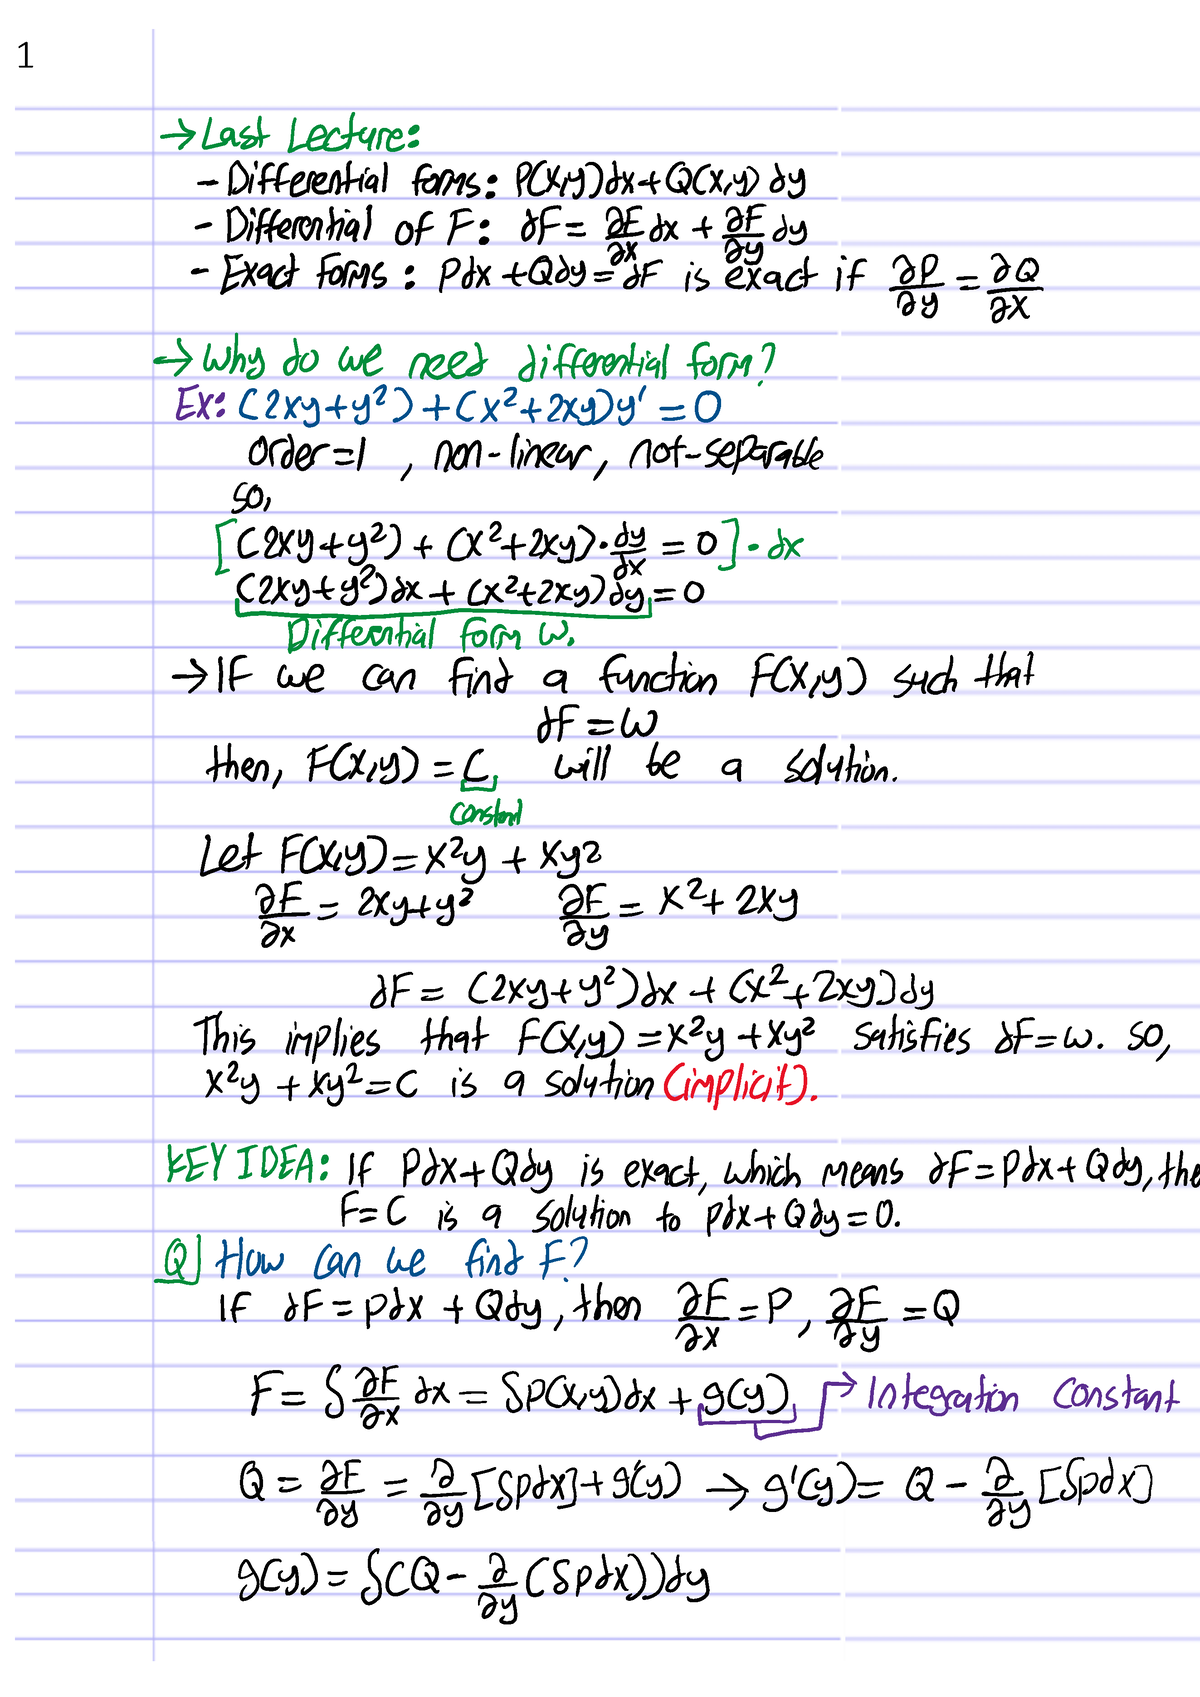 1
→ Last Lecture:
- Differential forms: P(x,y)dx + Q(x,y) dy
- Differential of F: dF = ∂F/∂x dx + ∂F/∂y dy
- Exact Forms: Pdx + Qdy = dF is exact if ∂P/∂y = ∂Q/∂x
→ Why do we need differential form?
Ex: (2xy+y²)+(x²+2xy)y' = 0
order=1, non-linear, not-separable
so,
[(2xy+y²) + (x²+2xy)·dy/dx = 0]·dx
(2xy+y²)dx + (x²+2xy)dy = 0
Differential form ω.
→ If we can find a function F(x,y) such that
dF = ω
then, F(x,y) = C will be a solution.
constant
Let F(x,y) = x²y + xy²
∂F/∂x = 2xy+y² ∂F/∂y = x²+2xy
dF = (2xy+y²)dx + (x²+2xy)dy
This implies that F(x,y) = x²y + xy² satisfies dF=ω. so,
x²y + xy² = C is a solution (implicit).
KEY IDEA: If Pdx + Qdy is exact, which means dF = Pdx + Qdy, the
F=C is a solution to Pdx + Qdy = 0.
Q| How can we find F?
If dF = Pdx + Qdy, then ∂F/∂x = P, ∂F/∂y = Q
F = ∫ ∂F/∂x dx = ∫P(x,y)dx + g(y) → Integration Constant
Q = ∂F/∂y = ∂/∂y [∫Pdx] + g'(y) → g'(y) = Q - ∂/∂y [∫Pdx]
g(y) = ∫(Q - ∂/∂y (∫Pdx))dy